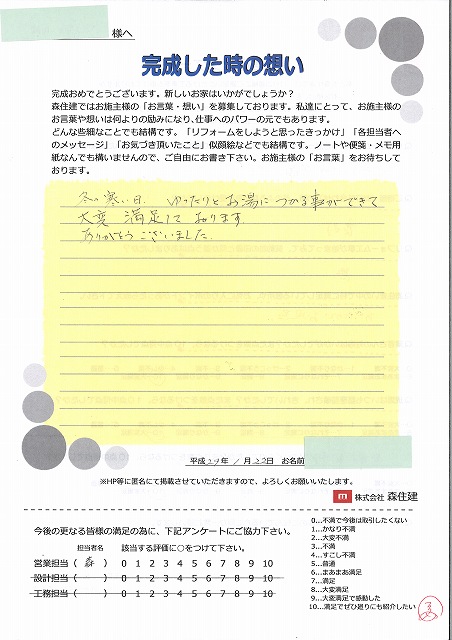 様へ
完成した時の想い
完成おめでとうございます。新しいお家はいかがでしょうか?
森住建ではお施主様の「お言葉・想い」を募集しております。私達にとって、お施主様の
お言葉や想いは何よりの励みになり、仕事へのパワーの元でもあります。
どんな些細なことでも結構です。「リフォームをしようと思ったきっかけ」「各担当者へ
のメッセージ」「お気づき頂いたこと」似顔絵などでも結構です。ノートや便箋・メモ用
紙なんでも構いませんので、ご自由にお書き下さい。お施主様の「お言葉」をお待ちして
おります。
冬の寒い日、ゆったりとお湯につかる事ができて
大変満足して おります。
ありがとうございました。
平成29年 1月22日 お名前
※HP等に匿名にて掲載させていただきますので、よろしくお願いいたします。
m 株式会社 森住建
今後の更なる皆様の満足の為に、下記アンケートにご協力下さい。
担当者名 該当する評価に○をつけて下さい。
営業担当 ( 森 ) 0 1 2 3 4 5 6 7 8 9 10
設計担当 ( ) 0 1 2 3 4 5 6 7 8 9 10
工務担当 ( ) 0 1 2 3 4 5 6 7 8 9 10
0…不満で今後は取引したくない
1…かなり不満
2…大変不満
3…不満
4…すこし不満
5…普通
6…まあまあ満足
7…満足
8…大変満足
9…大変満足で感動した
10…満足でぜひ廻りにも紹介したい